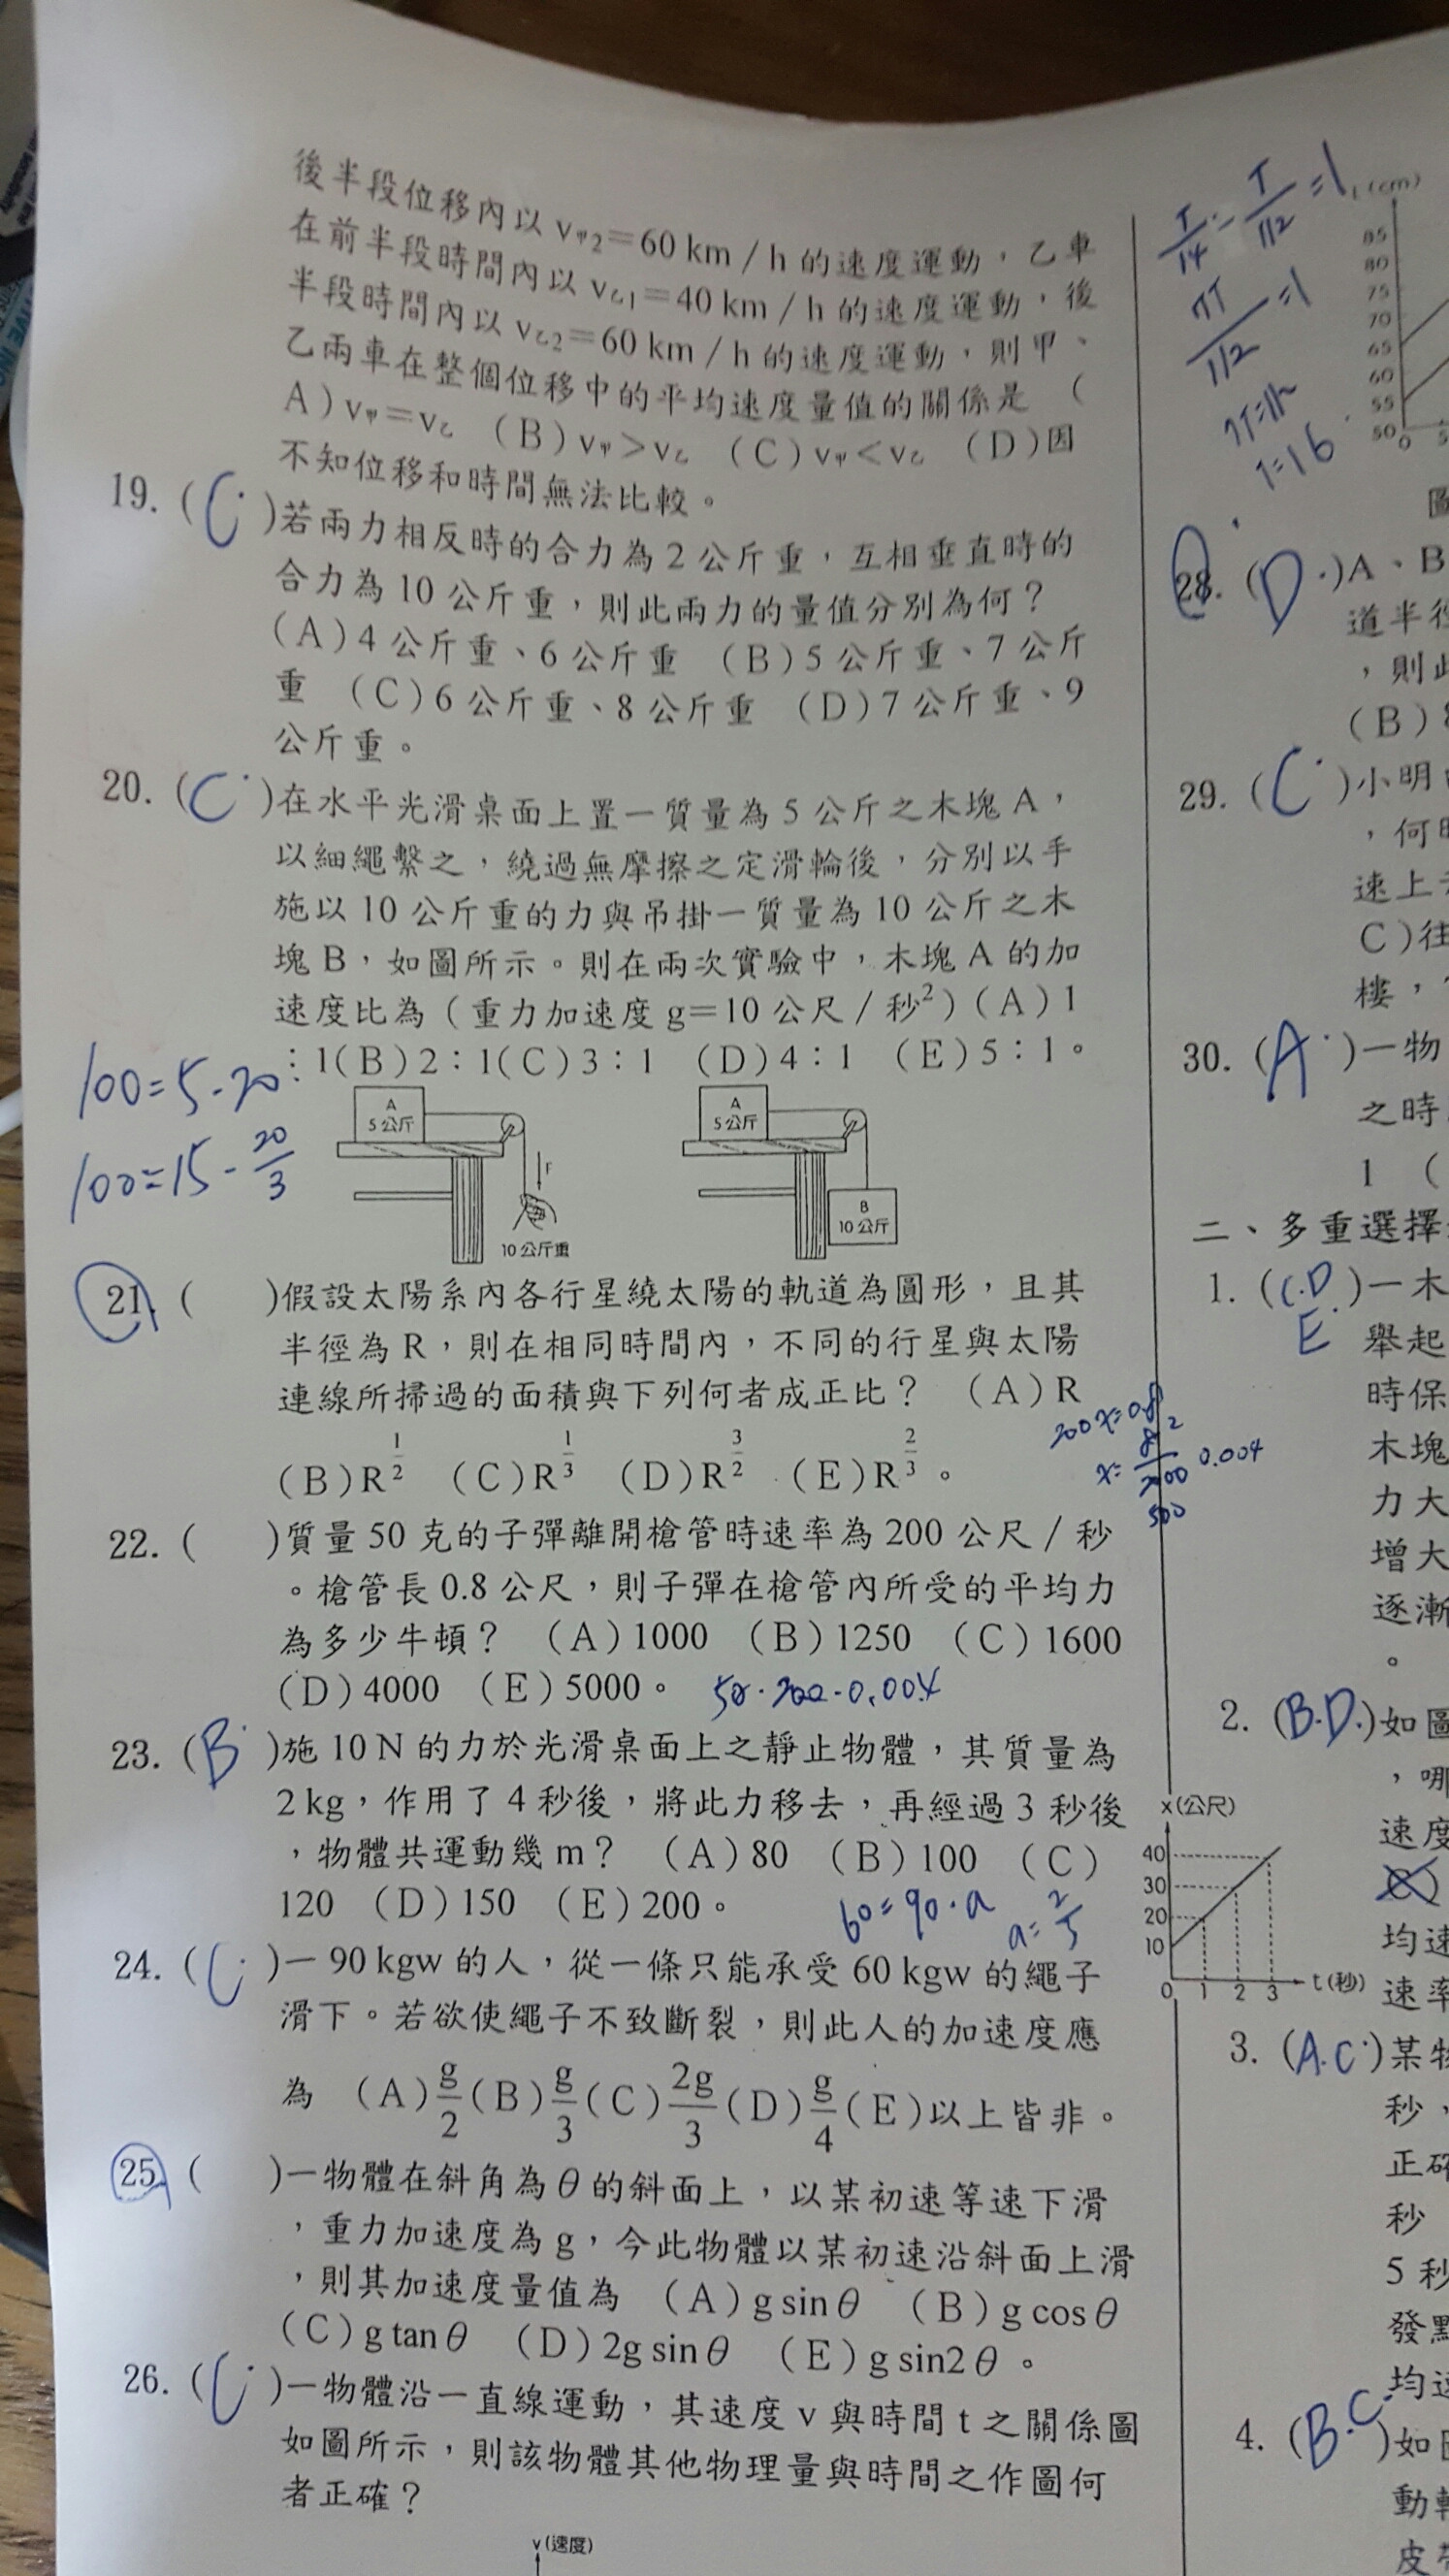 後半段位移內以 v甲2=60 km/h 的速度運動,乙車
在前半段時間內以 v乙1=40 km/h 的速度運動,後
半段時間內以 v乙2=60 km/h 的速度運動,則甲、
乙兩車在整個位移中的平均速度量值的關係是 (
A)v甲=v乙 (B)v甲>v乙 (C)v甲<v乙 (D)因
不知位移和時間無法比較。
19. (C)若兩力相反時的合力為2公斤重,互相垂直時的
合力為10公斤重,則此兩力的量值分別為何?
(A)4公斤重、6公斤重 (B)5公斤重、7公斤
重 (C)6公斤重、8公斤重 (D)7公斤重、9
公斤重。
20. (C)在水平光滑桌面上置一質量為5公斤之木塊A,
以細繩繫之,繞過無摩擦之定滑輪後,分別以手
施以10公斤重的力與吊掛一質量為10公斤之木
塊B,如圖所示。則在兩次實驗中,木塊A的加
速度比為(重力加速度g=10公尺/秒²)(A)1
:1(B)2:1(C)3:1 (D)4:1 (E)5:1。
100=5·20
100=15·20/3
A
5公斤
F
10公斤重
A
5公斤
B
10公斤
21. ( )假設太陽系內各行星繞太陽的軌道為圓形,且其
半徑為R,則在相同時間內,不同的行星與太陽
連線所掃過的面積與下列何者成正比? (A)R
(B)R^1/2 (C)R^1/3 (D)R^3/2 (E)R^2/3。
22. ( )質量50克的子彈離開槍管時速率為200公尺/秒
。槍管長0.8公尺,則子彈在槍管內所受的平均力
為多少牛頓? (A)1000 (B)1250 (C)1600
(D)4000 (E)5000。 50·200·0.004
200x=0.8
0.004
500
23. (B)施10N的力於光滑桌面上之靜止物體,其質量為
2kg,作用了4秒後,將此力移去,再經過3秒後
,物體共運動幾m? (A)80 (B)100 (C)
120 (D)150 (E)200。
60=90·a a=2/3
24. (C)一90kgw的人,從一條只能承受60kgw的繩子
滑下。若欲使繩子不致斷裂,則此人的加速度應
為 (A)g/2(B)g/3(C)2g/3(D)g/4(E)以上皆非。
25. ( )一物體在斜角為θ的斜面上,以某初速等速下滑
,重力加速度為g,今此物體以某初速沿斜面上滑
,則其加速度量值為 (A)gsinθ (B)gcosθ
(C)gtanθ (D)2gsinθ (E)gsin2θ。
26. (C)一物體沿一直線運動,其速度v與時間t之關係圖
如圖所示,則該物體其他物理量與時間之作圖何
者正確?
v(速度)
T/14 - T/112 =1
7T/112 =1
T=16
L(cm)
85
80
75
70
65
60
55
50
0
5
圖
28. (D)A、B
道半徑
,則此
(B)8
29. (C)小明
,何時
速上
C)往
樓,
30. (A)一物
之時
1 (
二、多重選擇
1. (C.D.E)一木
舉起
時保
木塊
力大
增大
逐漸
。
2. (B.D.)如圖
,哪
速度
C)
均速
速率
x(公尺)
40
30
20
10
0 1 2 3 t(秒)
3. (A.C)某物
秒,
正確
秒
5秒
發點
均速
4. (B.C)如圖
動
皮帶